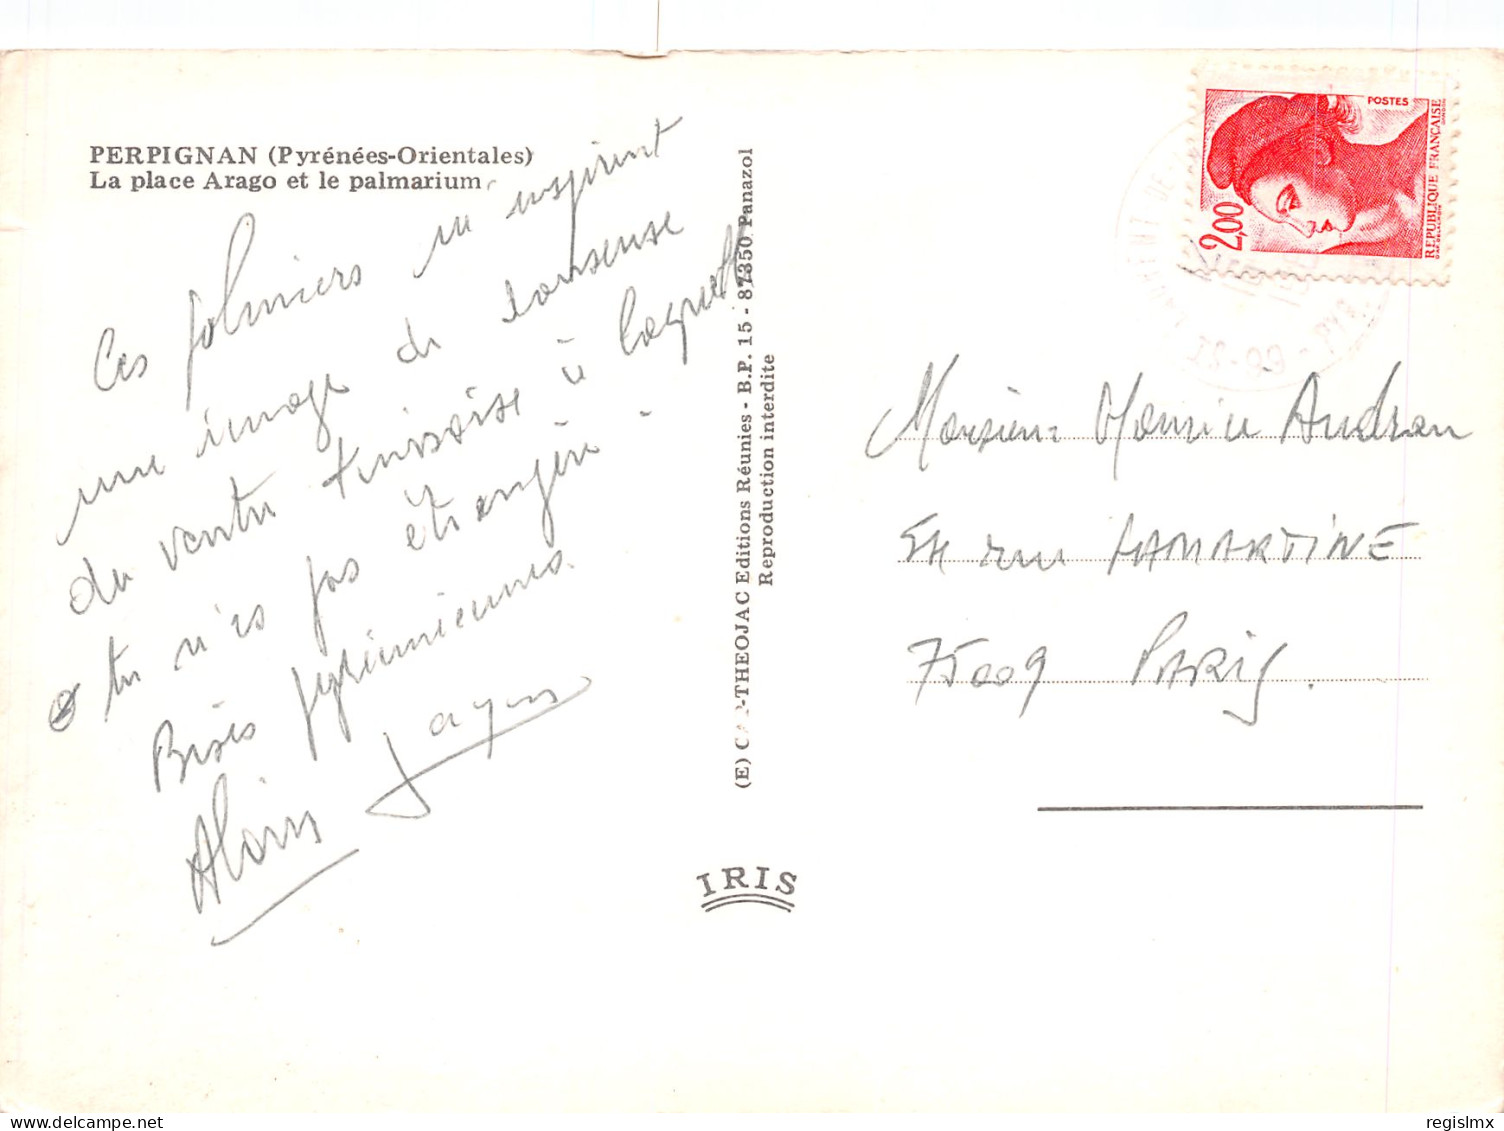 PERPIGNAN (Pyrénées-Orientales)
La place Arago et le palmarium
Ces palmiers m'inspirent
une image de danseuse
du ventre tunisoise à laquelle
tu n'es pas étrangère.
Bises pyrénéennes.
Alain
(E) CAP-THEOJAC Editions Réunies - B.P. 15 - 87350 Panazol
Reproduction interdite
IRIS
POSTES
2,00
REPUBLIQUE FRANÇAISE
Monsieur Maurice Audran
54 rue LAMARTINE
75009 PARIS.
regislmx